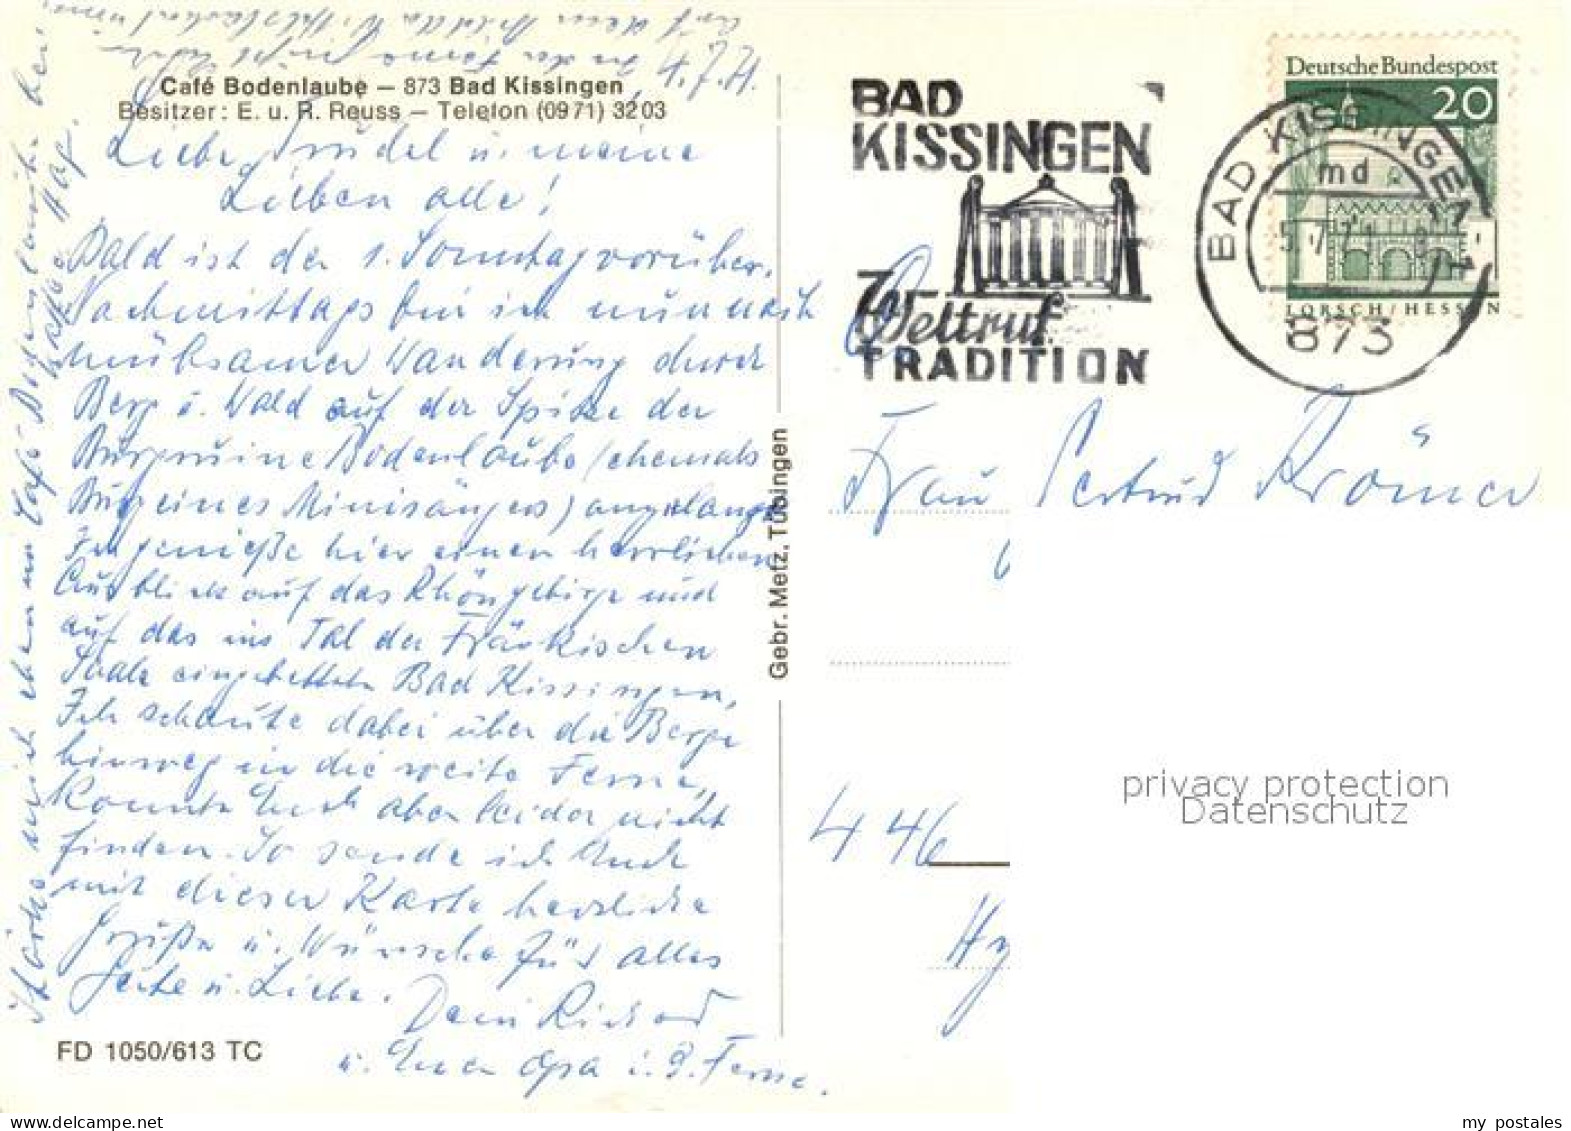 4.7.71
Café Bodenlaube – 873 Bad Kissingen
Besitzer: E. u. R. Reuss – Telefon (0971) 3203
Liebe Trudel u. meine
Lieben alle!
Bald ist der 1. Sonntag vorüber.
Nachmittags bin ich nun nach
mühsamer Wanderung durch
Berg u. Wald auf der Spitze der
Burgruine Bodenlaube (ehemals
Burg eines Minisängers) angelangt
Ich genieße hier einen herrlichen
Ausblick auf das Rhöngebirge und
auf das ins Tal der Fränkischen
Saale eingebettete Bad Kissingen,
Ich schaute dabei über die Berge
hinweg in die weite Ferne,
Konnte Euch aber leider nicht
finden. So sende ich Euch
mit dieser Karte herzliche
Grüße u. Wünsche für alles
Gute u. Liebe.
Dein Richard
u. Euer Opa i. d. Ferne.
Stärke mich eben im Café Bodenlaube bei
Kaffee Hag.
FD 1050/613 TC
Gebr. Metz, Tübingen
BAD
KISSINGEN
Weltruf
TRADITION
BAD KISSINGEN 1
md
5.7.71
873
Deutsche Bundespost
20
LORSCH/HESSEN
Frau Gertrud Krömer
446
privacy protection
Datenschutz
my postales